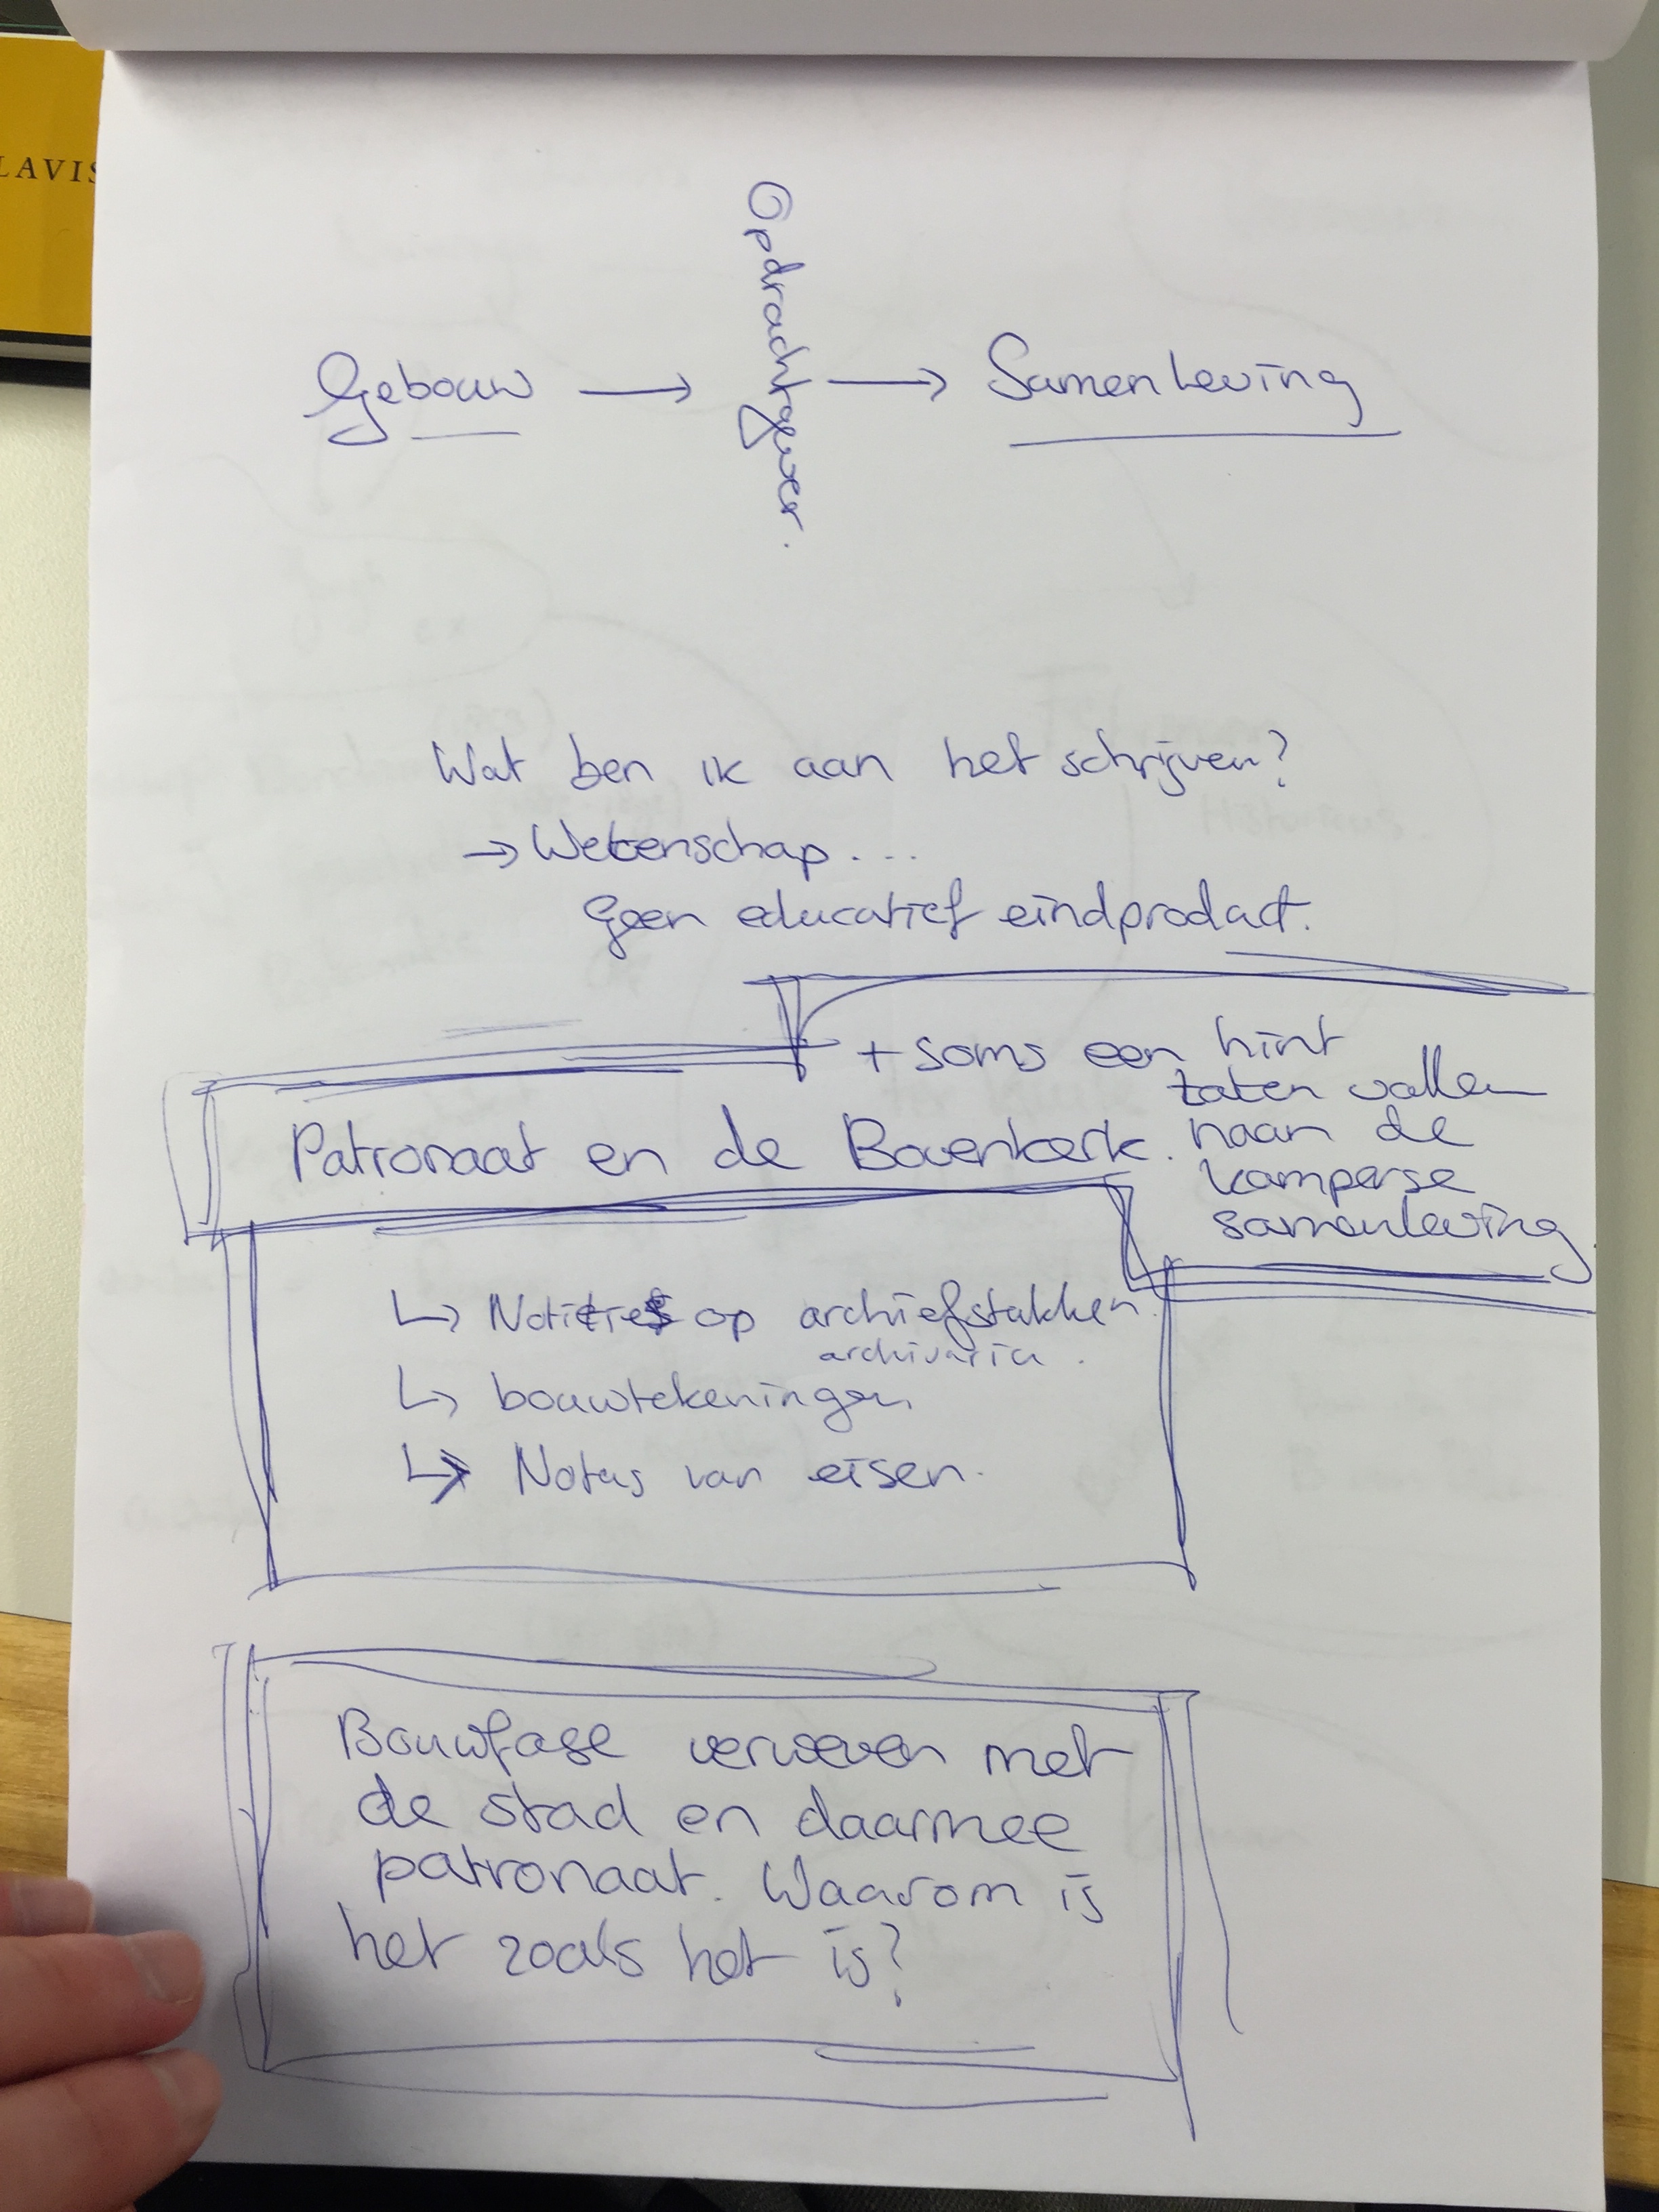 LAVIS
Opdrachtgever.
Gebouw → → Samenleving
Wat ben ik aan het schrijven?
→ Wetenschap ...
Geen educatief eindproduct.
+ soms een hint
laten vallen
naar de
Kamperse
samenleving.
Patronaat en de Bovenkerk.
↳ Notities op archiefstukken.
archivaria.
↳ bouwtekeningen
↳ Notas van eisen.
Bouwfase verweven met
de stad en daarmee
patronaat. Waarom is
het zoals het is?